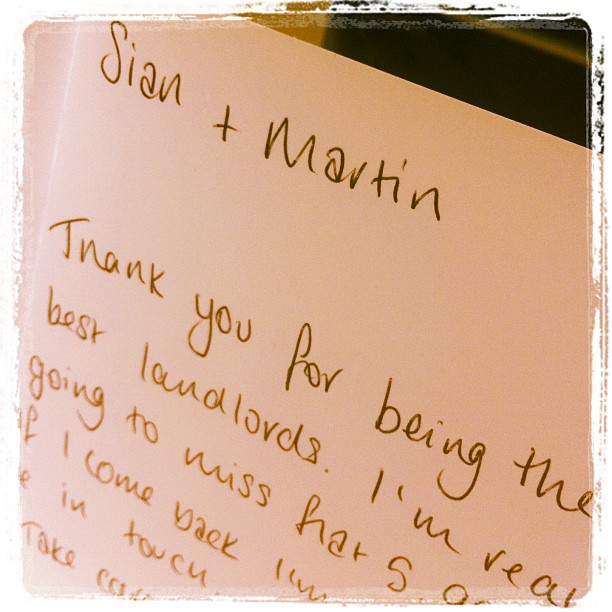 Sian
+ Martin
Thank you for being the
best landlords. I'm real
going to miss flat 5
f I come back I'm
e in touch.
Take car